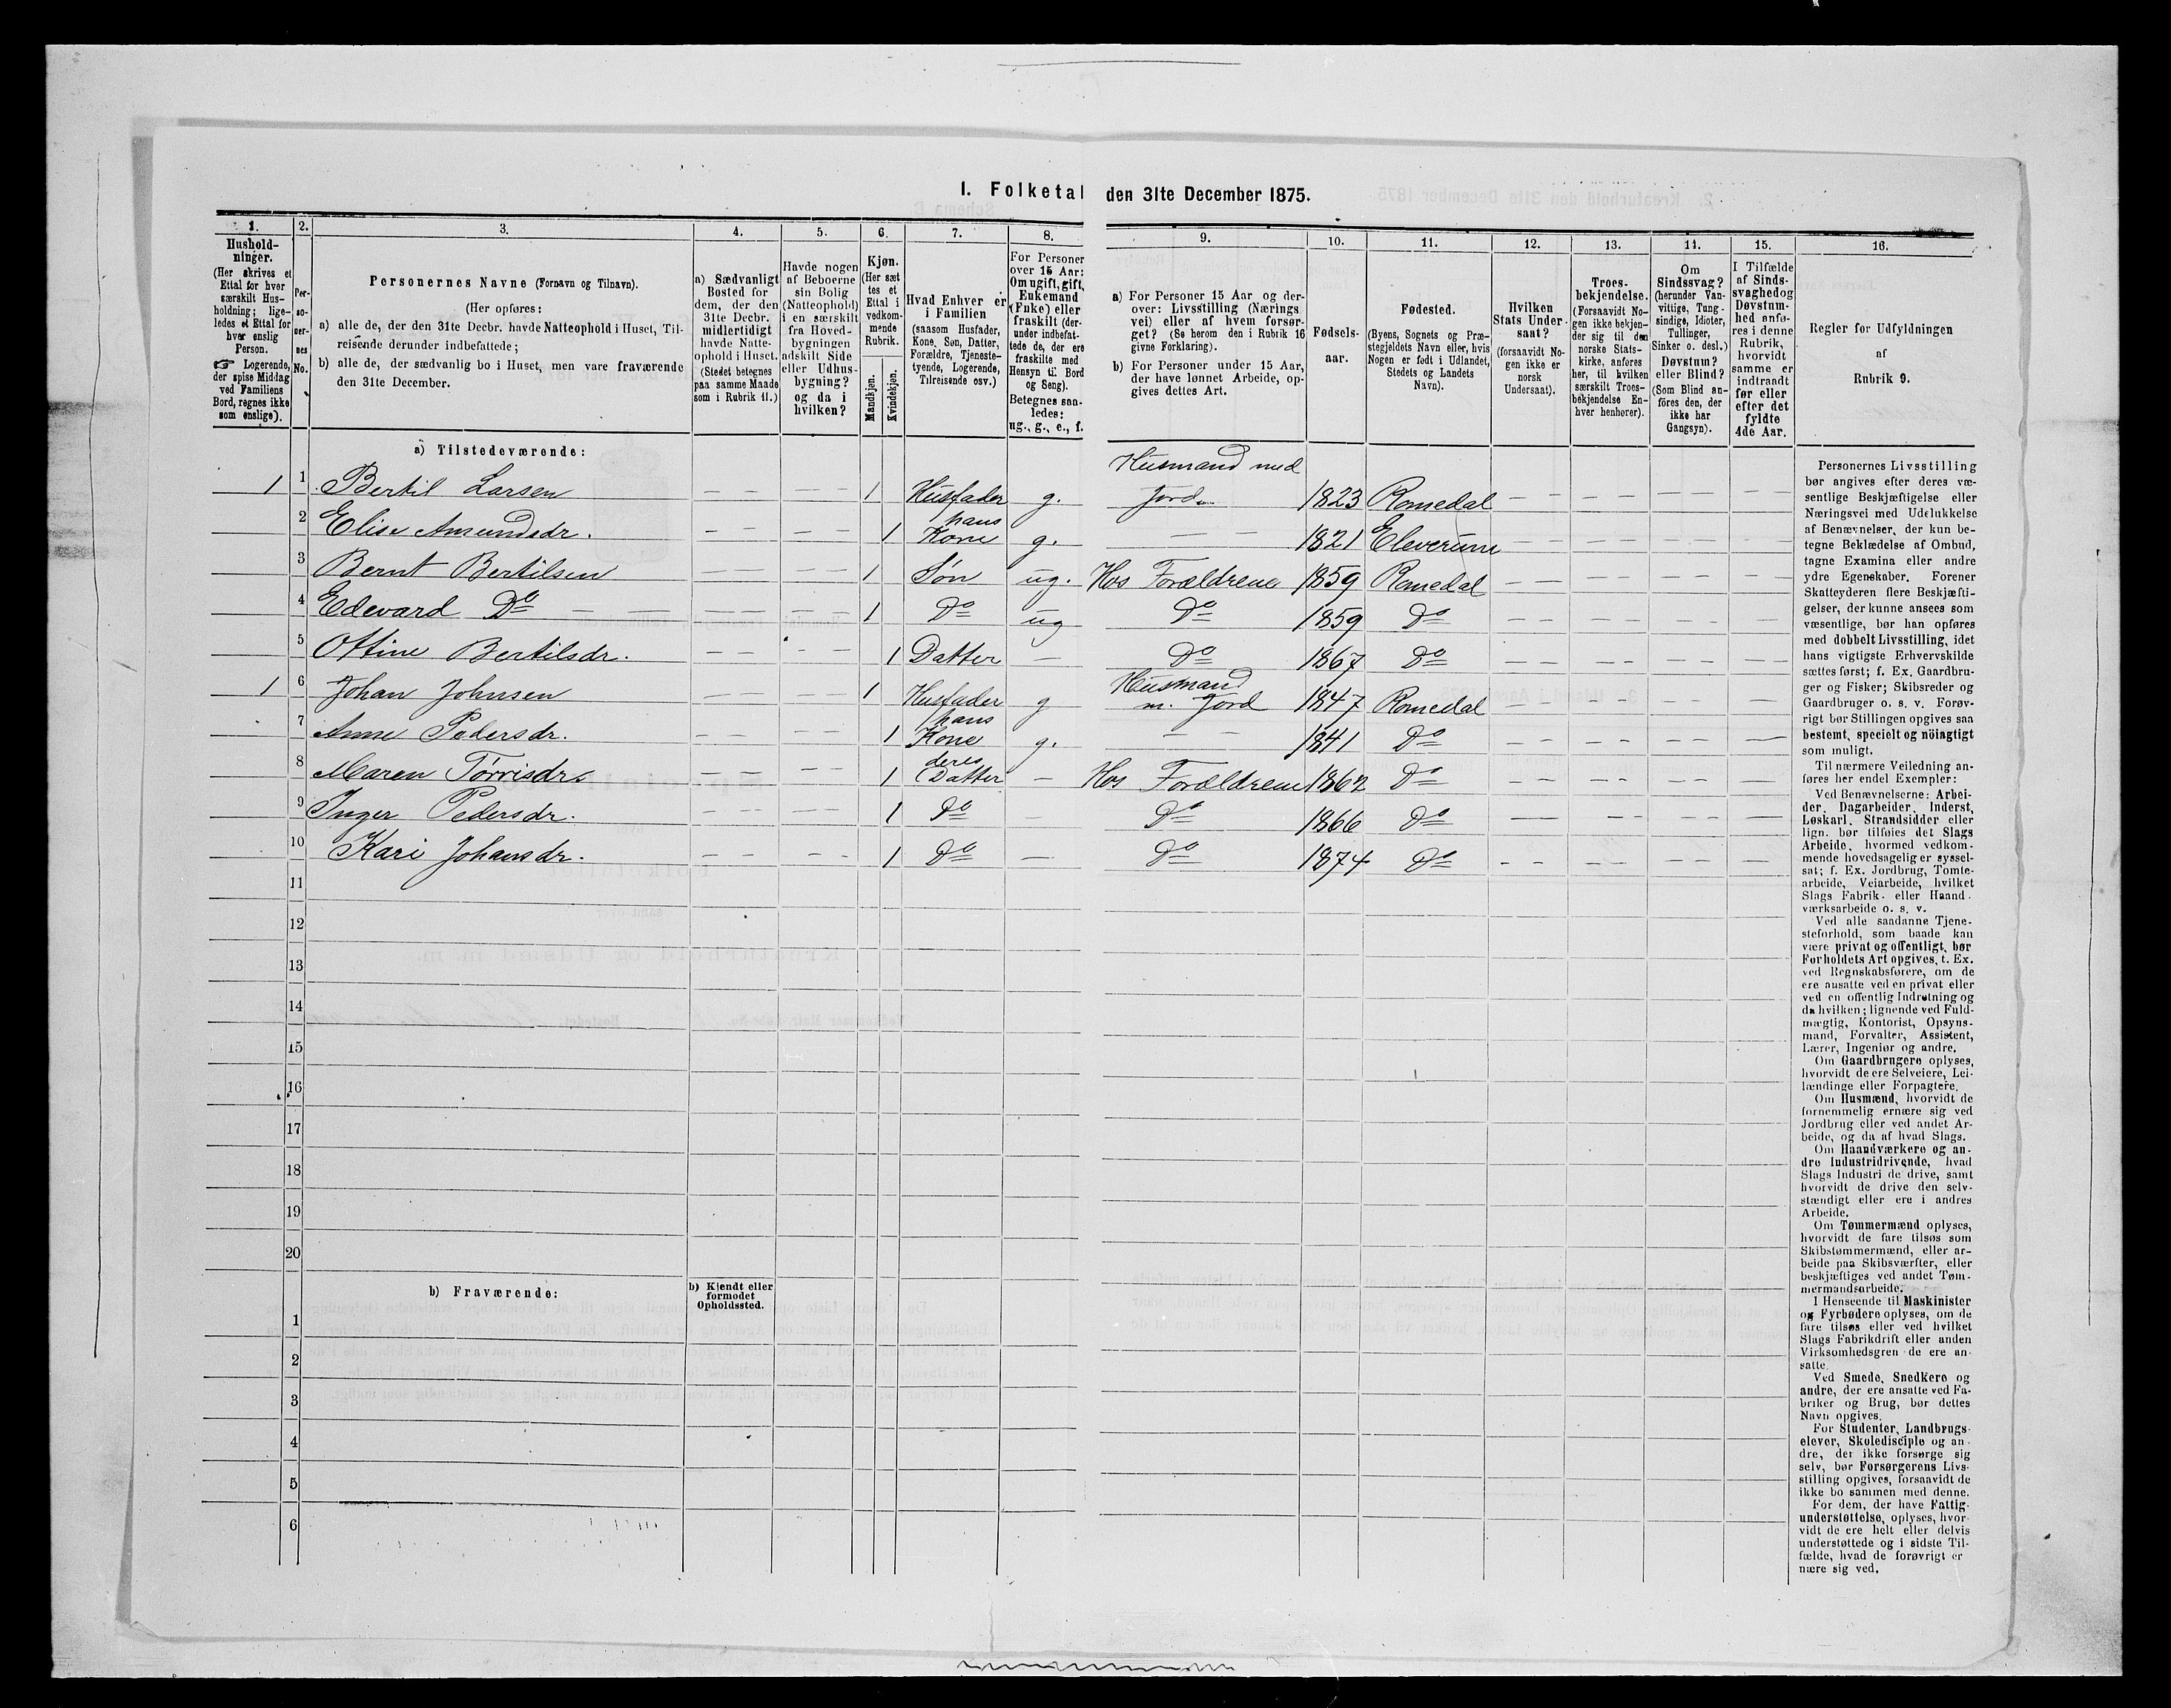 I. Folketal den 31te December 1875.
1. 2. 3. 4. 5. 6. 7. 8. 9. 10. 11. 12. 13. 11. 15. 16.
Hushold-
ninger.
(Her skrives et
Ettal for hver
særskilt Hus-
holdning; lige-
ledes et Ettal for
hver enslig
Person.
☞ Logerende,
der spise Middag
ved Familiens
Bord, regnes ikke
som enslige).
Per-
so-
ner-
nes
No.
Personernes Navne (Fornavn og Tilnavn).
(Her opføres:
a) alle de, der den 31te Decbr. havde Natteophold i Huset, Til-
reisende derunder indbefattede;
b) alle de, der sædvanlig bo i Huset, men vare fraværende
den 31te December.
a) Sædvanligt
Bosted for
dem, der den
31te Decbr.
midlertidigt
havde Natte-
ophold i Huset.
(Stedet betegnes
paa samme Maade
som i Rubrik 11.)
Havde nogen
af Beboerne
sin Bolig
(Natteophold)
i en særskilt
fra Hoved-
bygningen
adskilt Side
eller Udhus-
bygning?
og da i
hvilken?
Kjøn.
(Her sæt
tes et
Ettal i
vedkom-
mende
Rubrik.
Mandkjøn.
Kvindekjøn.
Hvad Enhver er
i Familien
(saasom Husfader,
Kone, Søn, Datter,
Forældre, Tjeneste-
tyende, Logerende,
Tilreisende osv.)
For Personer
over 15 Aar:
Om ugift, gift,
Enkemand
(Enke) eller
fraskilt (der-
under indbefat-
tede de, der ere
fraskilte med
Hensyn til Bord
og Seng).
Betegnes saa-
ledes:
ug., g., e., f.
a) For Personer 15 Aar og der-
over: Livsstilling (Nærings
vei) eller af hvem forsør-
get? (Se herom den i Rubrik 16
givne Forklaring).
b) For Personer under 15 Aar,
der have lønnet Arbeide, op-
gives dettes Art.
Fødsels-
aar.
Fødested.
(Byens, Sognets og Præ-
stegjeldets Navn eller, hvis
Nogen er født i Udlandet,
Stedets og Landets
Navn).
Hvilken
Stats Under-
saat?
(forsaavidt No-
gen ikke er
norsk
Undersaat).
Troes-
bekjendelse.
(Forsaavidt No-
gen ikke bekjen-
der sig til den
norske Stats-
kirke, anføres
her, til hvilken
særskilt Troes-
bekjendelse En-
hver henhører).
Om
Sindssvag?
(herunder Van-
vittige, Tung-
sindige, Idioter,
Tullinger,
Sinker o. desl.)
Døvstum?
eller Blind?
(Som Blind an-
føres den, der
ikke har
Gangsyn).
I Tilfælde
af Sinds-
svaghed og
Døvstum-
hed anfø-
res i denne
Rubrik,
hvorvidt
samme er
indtraadt
før eller
efter det
fyldte
4de Aar.
Regler for Udfyldningen
af
Rubrik 9.
a) Tilstedeværende:
1 1 Bertil Larsen — — — — 1 Husfader g. Husmand med Jord 1823 Romedal — — — — — —
2 Elise Amundsdr. — — — — 1 hans Kone g. — — 1821 Eleverum — — — — — —
3 Bernt Bertilsen — — — — 1 Søn ug. Hos Forældrene 1859 Romedal — — — — — —
4 Edevard Do — — — — — — 1 Do ug Do 1859 Do — — — — — —
5 Ottine Bertilsdr. — — — — 1 Datter — Do 1867 Do — — — — — —
1 6 Johan Johnsen — — — — 1 Husfader g Husmand m. Jord 1847 Romedal — — — — — —
7 Anne Pedersdr. — — — — 1 hans Kone g. — — 1841 Do — — — — — —
8 Maren Tørrisdr. — — — — 1 deres Datter — Hos Forældrene 1862 Do — — — — — —
9 Inger Pedersdr. — — — — 1 Do — Do 1866 Do — — — — — —
10 Kari Johansdr. — — — — 1 Do — Do 1874 Do — — — — — —
11
12
13
14
15
16
17
18
19
20
b) Fraværende:
b) Kjendt eller
formodet
Opholdssted.
1
2
3
4
5
6
Personernes Livsstilling
bør angives efter deres væ-
sentlige Beskjæftigelse eller
Næringsvei med Udelukkelse
af Benævnelser, der kun be-
tegne Beklædelse af Ombud,
tagne Examina eller andre
ydre Egenskaber. Forener
Skatteyderen flere Beskjæfti-
gelser, der kunne ansees som
væsentlige, bør han opføres
med dobbelt Livsstilling, idet
hans vigtigste Erhvervskilde
sættes først; f. Ex. Gaardbru-
ger og Fisker; Skibsreder og
Gaardbruger o. s. v. Forøv-
rigt bør Stillingen opgives saa
bestemt, specielt og nöiagtigt
som muligt.
Til nærmere Veiledning an-
føres her endel Exempler:
Ved Benævnelserne: Arbei-
der, Dagarbeider, Inderst,
Løskarl, Strandsidder eller
lign. bør tilføies det Slags
Arbeide, hvormed vedkom-
mende hovedsagelig er syssel-
sat; f. Ex. Jordbrug, Tomte-
arbeide, Veiarbeide, hvilket
Slags Fabrik- eller Haand-
værksarbeide o. s. v.
Ved alle saadanne Tjene-
steforhold, som baade kan
være privat og offentligt, bør
Forholdets Art opgives, t. Ex.
ved Regnskabsførere, om de
ere ansatte ved en privat eller
ved en offentlig Indretning og
da hvilken; lignende ved Fuld-
mægtig, Kontorist, Opsyns-
mand, Forvalter, Assistent,
Lærer, Ingeniør og andre.
Om Gaardbrugere oplyses,
hvorvidt de ere Selveiere, Lei-
lændinge eller Forpagtere.
Om Husmænd, hvorvidt de
fornemmelig ernære sig ved
Jordbrug eller ved andet Ar-
beide, og da af hvad Slags.
Om Haandværkere og an-
dre Industridrivende, hvad
Slags Industri de drive, samt
hvorvidt de drive den selv-
stændigt eller ere i andres
Arbeide.
Om Tømmermænd oplyses,
hvorvidt de fare tilsøs som
Skibstømmermænd, eller ar-
beide paa Skibsværfter, eller
beskjæftiges ved andet Tøm-
mermandsarbeide.
I Henseende til Maskinister
og Fyrbødere oplyses, om de
fare tilsøs eller ved hvilket
Slags Fabrikdrift eller anden
Virksomhedsgren de ere an-
satte.
Ved Smede, Snedkere og
andre, der ere ansatte ved Fa-
briker og Brug, bør dettes
Navn opgives.
For Studenter, Landbrugs-
elever, Skoledisciple og an-
dre, der ikke forsørge sig
selv, bør Forsørgerens Livs-
stilling opgives, forsaavidt de
ikke bo sammen med denne.
For dem, der have Fattig-
understøttelse, oplyses, hvor-
vidt de ere helt eller delvis
understøttede og i sidste Til-
fælde, hvad de forøvrigt er
nære sig ved.